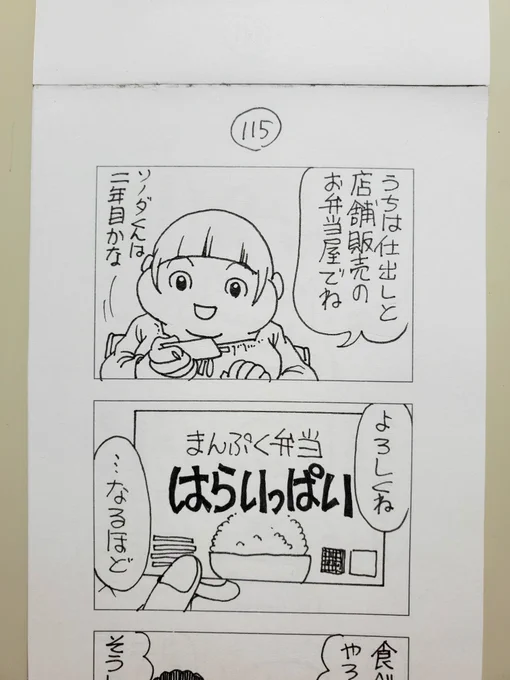 115
うちは仕出しと
店舗販売の
お弁当屋でね
ソノダくんは
二年目かな
よろしくね
まんぷく弁当
はらいっぱい
…なるほど
食べ
やろ
そうし